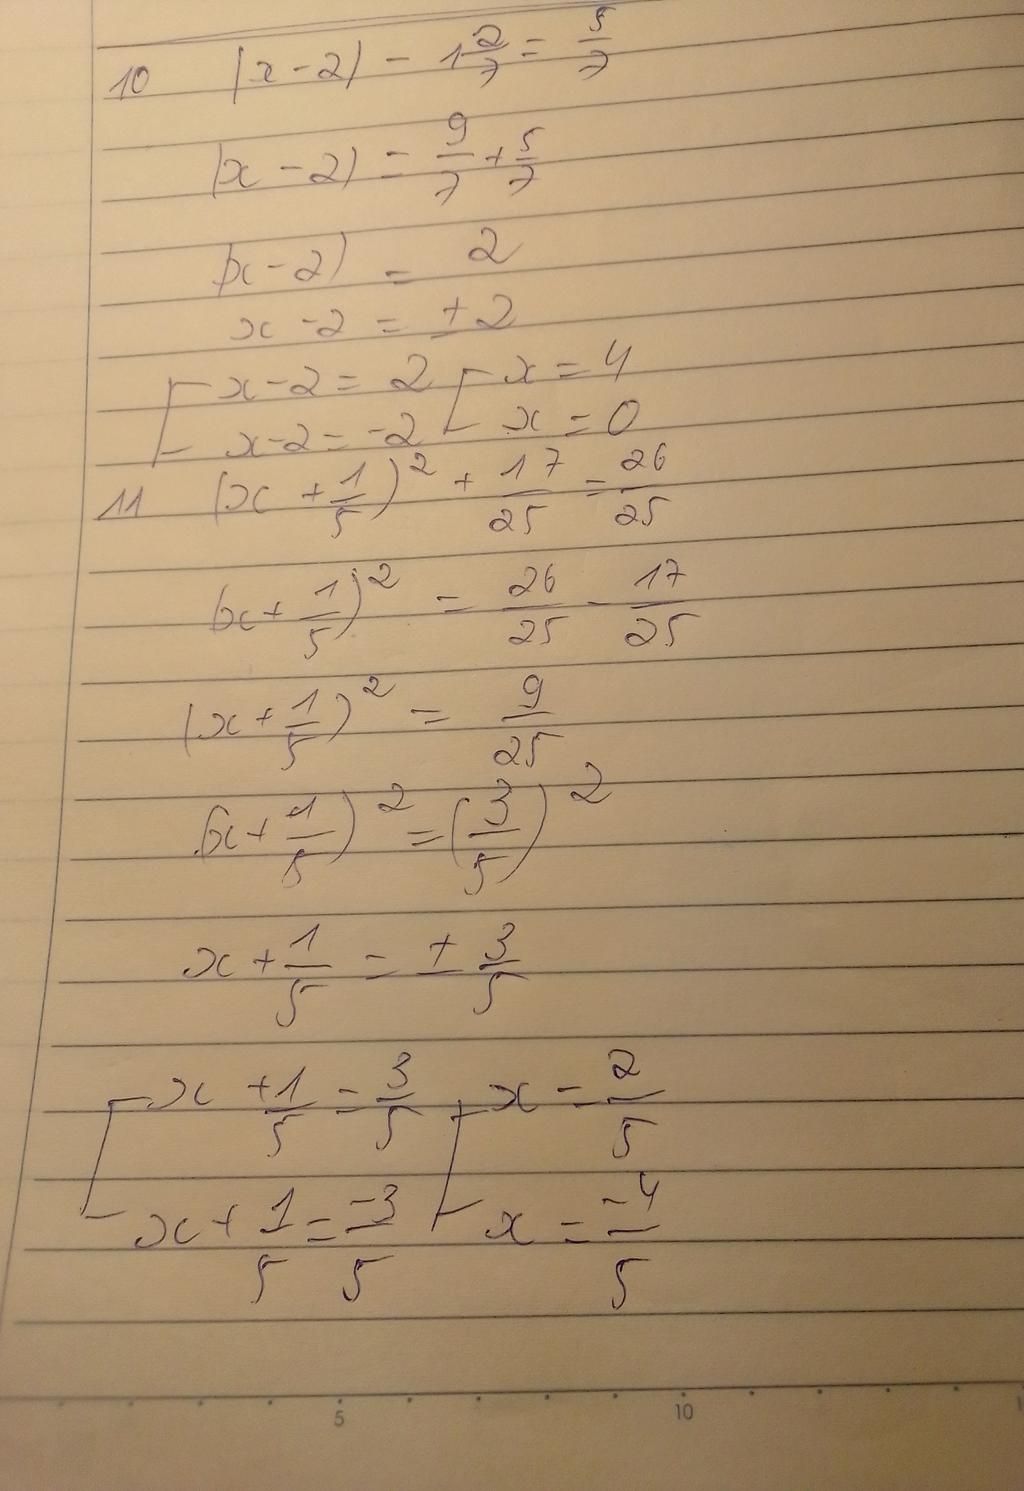 10 |x - 2| - 1 2/7 = 5/7
|x - 2| = 9/7 + 5/7
|x - 2| = 2
x - 2 = ± 2
[ x - 2 = 2 [ x = 4
x - 2 = -2 x = 0
11 (x + 1/5)² + 17/25 = 26/25
(x + 1/5)² = 26/25 - 17/25
(x + 1/5)² = 9/25
(x + 1/5)² = (3/5)²
x + 1/5 = ± 3/5
[ x + 1/5 = 3/5 [ x = 2/5
x + 1/5 = -3/5 x = -4/5
5 10